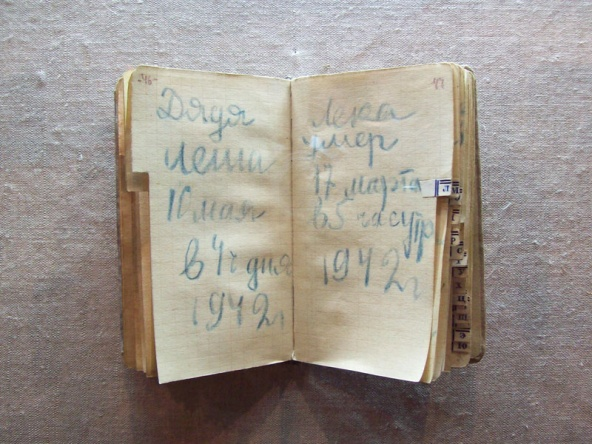 Дядя
Леша
10 мая
в 4 ч дня
1942 г
Лека
умер
17 марта
в 5 час утр
1942 г
Л М